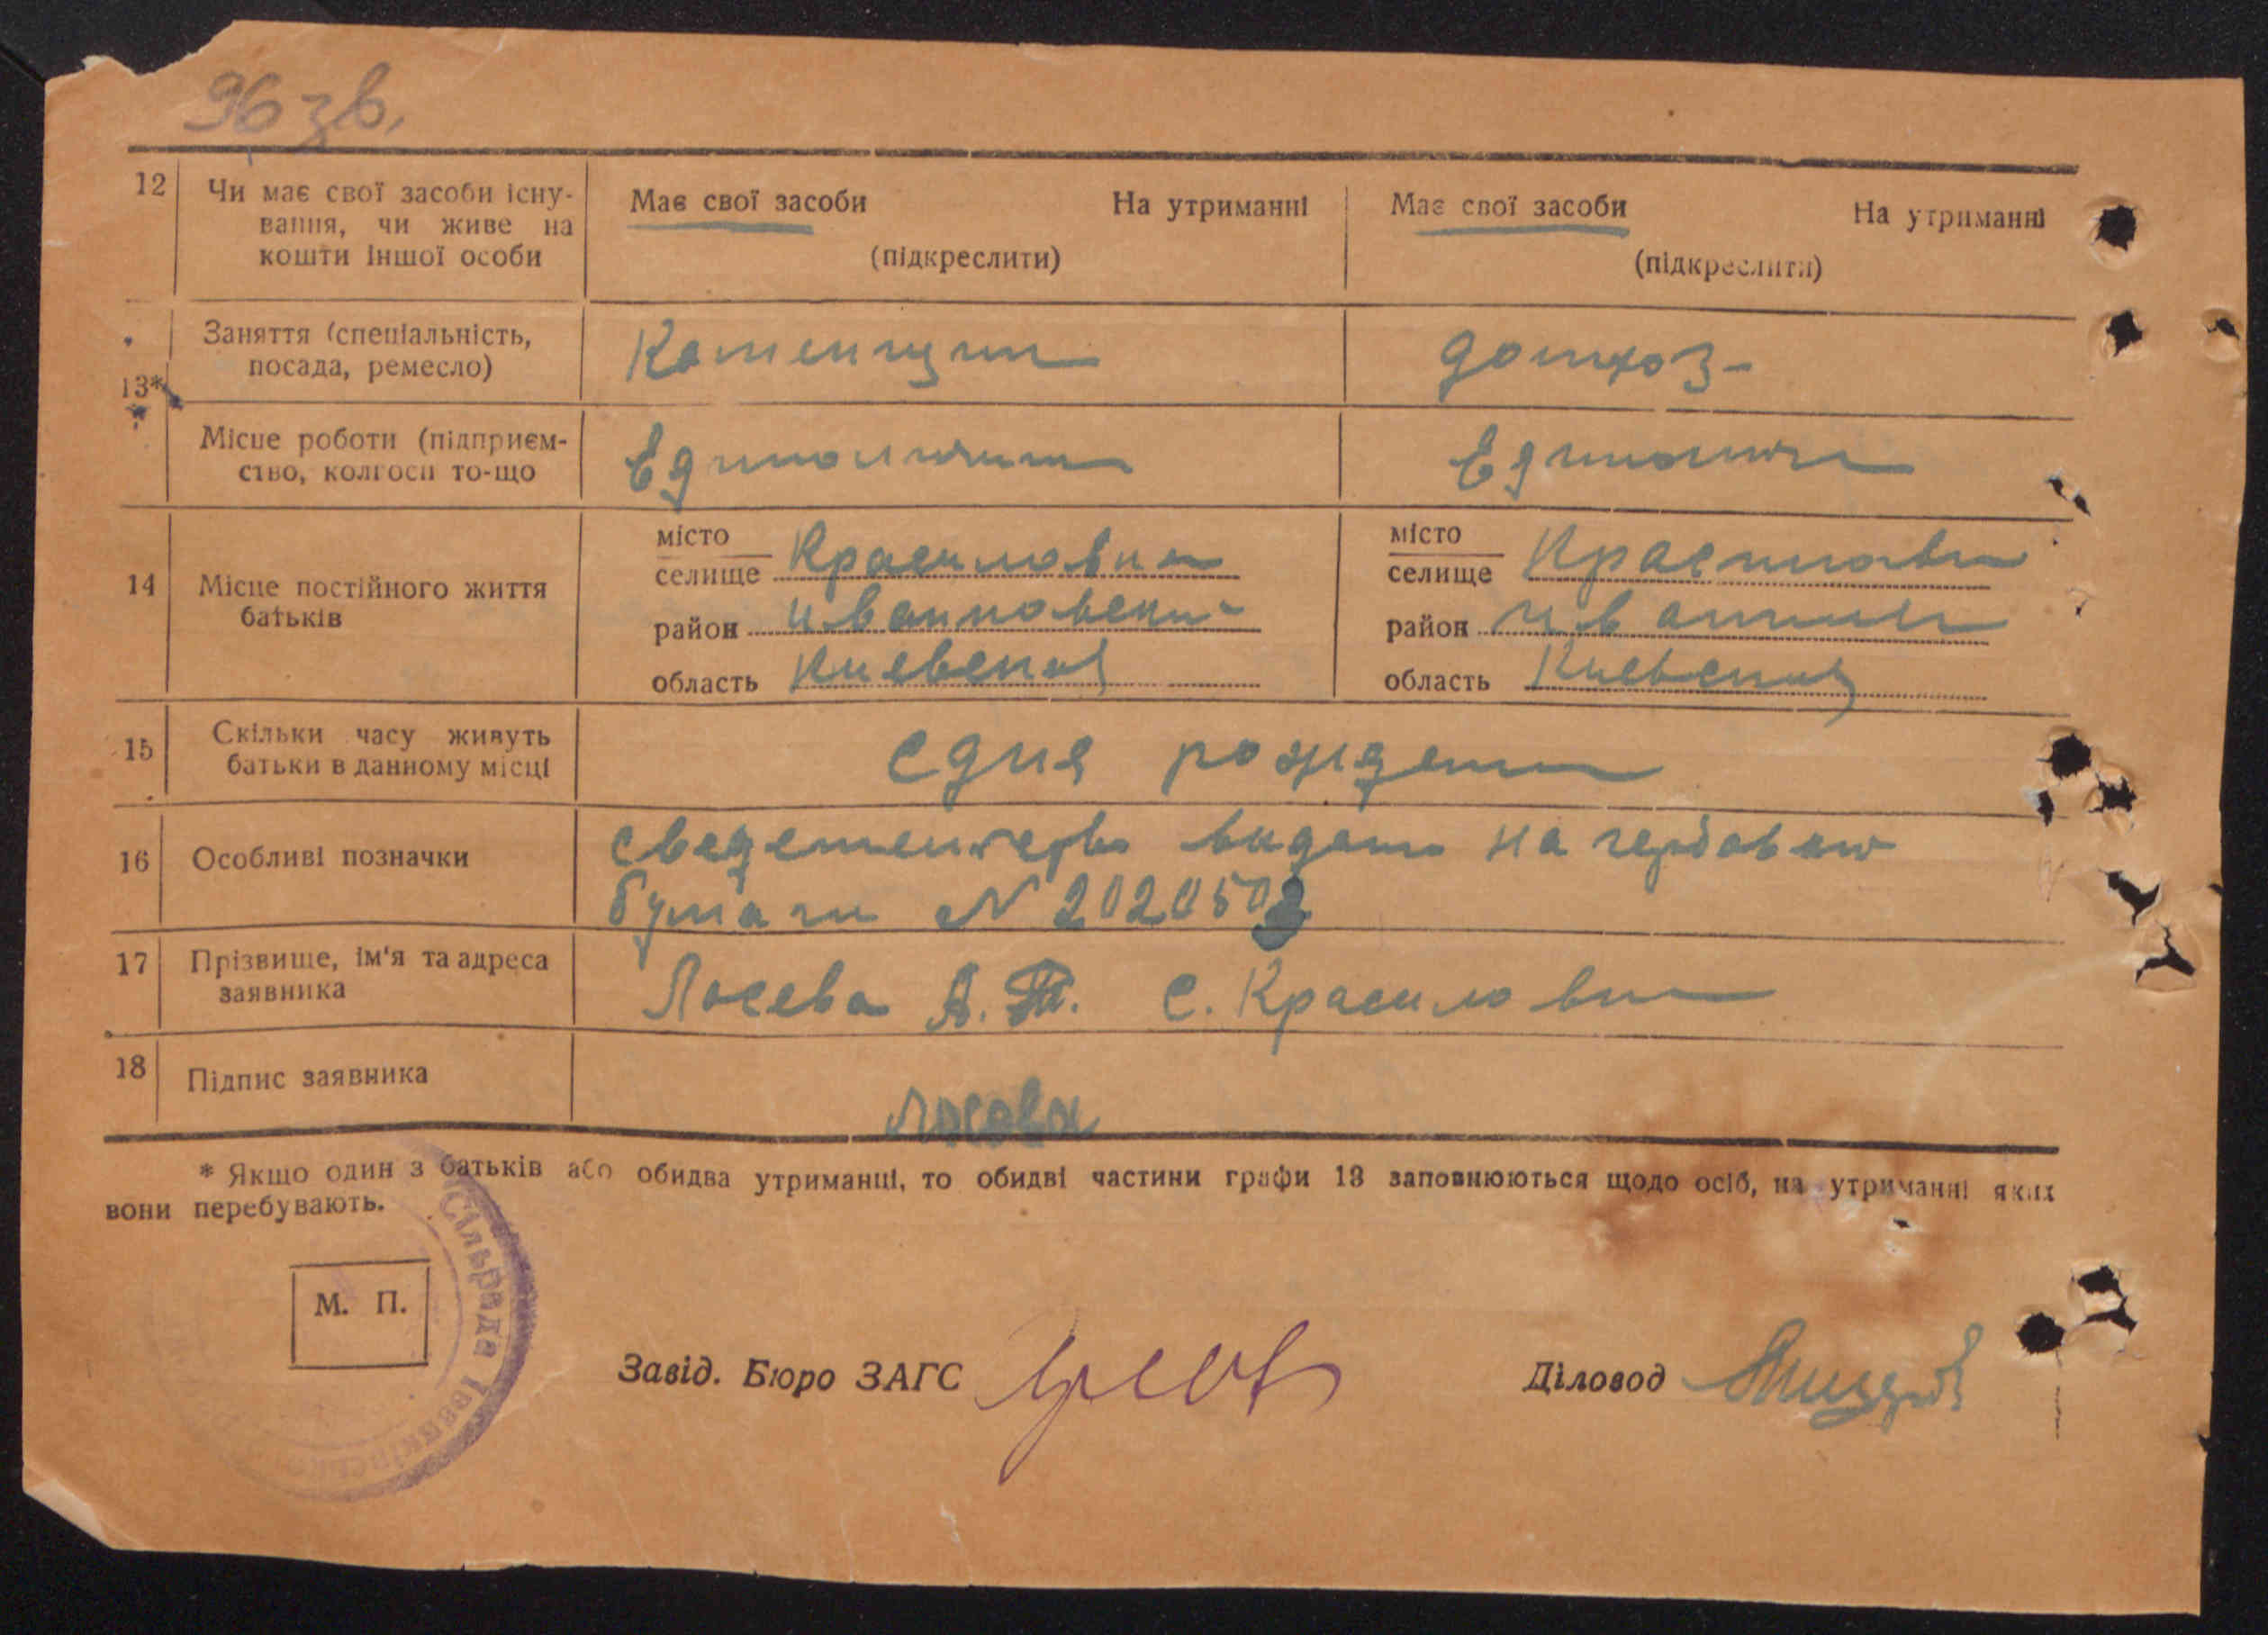 96 зв.
12 Чи має свої засоби існу-
вання, чи живе на
кошти іншої особи
Має свої засоби На утриманні
(підкреслити)
Має свої засоби На утриманні
(підкреслити)
13*
Заняття (спеціальність,
посада, ремесло)
Каменщик
домхоз-
Місце роботи (підприєм-
ство, колгосп то-що
Единоличник
Единолични
14 Місце постійного життя
батьків
місто
селище Красиловка
район Иванковский
область Киевской
місто
селище Красиловка
район Иванков
область Киевской
15 Скільки часу живуть
батьки в данному місці
Сдня рождени
16 Особливі позначки
Сведетельство видано на гербовой
бумаги N 2020503
17 Прізвище, ім'я та адреса
заявника
Лосева А. с. Красиловка
18 Підпис заявника
Лосева
* Якщо один з батьків або обидва утриманці, то обидві частини графи 13 заповнюються щодо осіб, на утриманні яких
вони перебувають.
Сільрада Іванківськ
М. П.
Завід. Бюро ЗАГС
Діловод